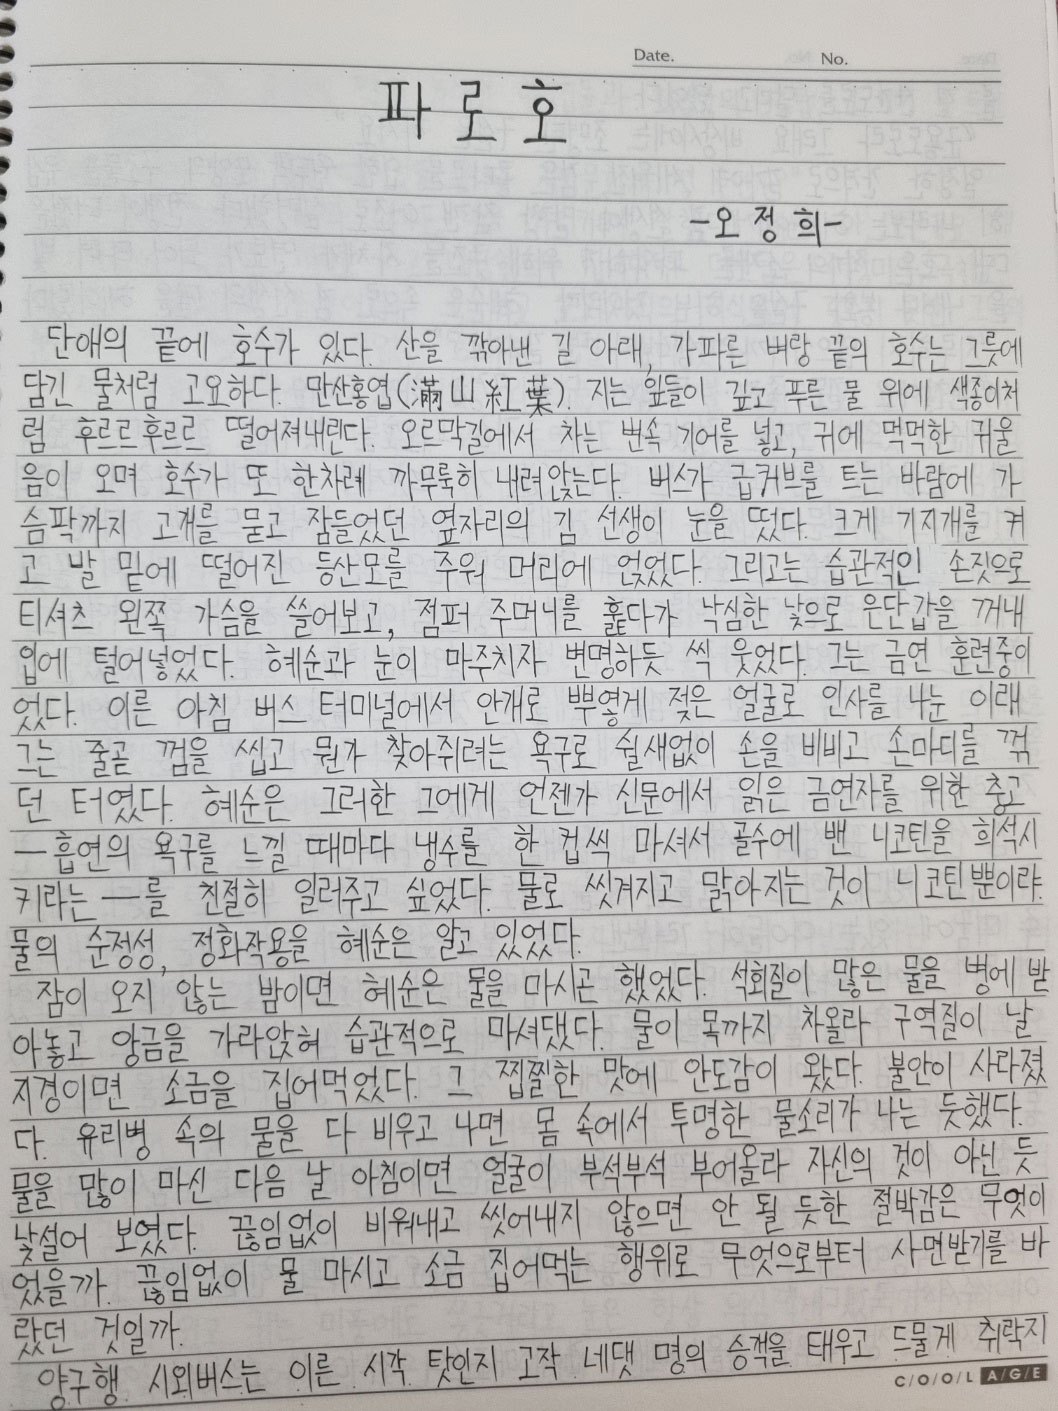 Date. No.
파로호
-오정희-
단애의 끝에 호수가 있다. 산을 깎아낸 길 아래, 가파른 벼랑 끝의 호수는 그릇에
담긴 물처럼 고요하다. 만산홍엽(滿山紅葉). 지는 잎들이 깊고 푸른 물 위에 색종이처
럼 후르르후르르 떨어져내린다. 오르막길에서 차는 변속 기어를 넣고, 귀에 먹먹한 귀울
음이 오며 호수가 또 한차례 까무룩히 내려앉는다. 버스가 급커브를 트는 바람에 가
슴팍까지 고개를 묻고 잠들었던 옆자리의 김 선생이 눈을 떴다. 크게 기지개를 켜
고 발 밑에 떨어진 등산모를 주워 머리에 얹었다. 그리고는 습관적인 손짓으로
티셔츠 왼쪽 가슴을 쓸어보고, 점퍼 주머니를 훑다가 낙심한 낯으로 은단갑을 꺼내
입에 털어넣었다. 혜순과 눈이 마주치자 변명하듯 씩 웃었다. 그는 금연 훈련중이
었다. 이른 아침 버스 터미널에서 안개로 뿌옇게 젖은 얼굴로 인사를 나눈 이래
그는 줄곧 껌을 씹고 뭔가 찾아쥐려는 욕구로 쉴새없이 손을 비비고 손마디를 꺾
던 터였다. 혜순은 그러한 그에게 언젠가 신문에서 읽은 금연자를 위한 충고
—흡연의 욕구를 느낄 때마다 냉수를 한 컵씩 마셔서 골수에 밴 니코틴을 희석시
키라는—를 친절히 일러주고 싶었다. 물로 씻겨지고 맑아지는 것이 니코틴뿐이랴.
물의 순정성, 정화작용을 혜순은 알고 있었다.
잠이 오지 않는 밤이면 혜순은 물을 마시곤 했었다. 석회질이 많은 물을 병에 받
아놓고 앙금을 가라앉혀 습관적으로 마셔댔다. 물이 목까지 차올라 구역질이 날
지경이면 소금을 집어먹었다. 그 찝찔한 맛에 안도감이 왔다. 불안이 사라졌
다. 유리병 속의 물을 다 비우고 나면 몸 속에서 투명한 물소리가 나는 듯했다.
물을 많이 마신 다음 날 아침이면 얼굴이 부석부석 부어올라 자신의 것이 아닌 듯
낯설어 보였다. 끊임없이 비워내고 씻어내지 않으면 안 될 듯한 절박감은 무엇이
었을까. 끊임없이 물 마시고 소금 집어먹는 행위로 무엇으로부터 사면받기를 바
랐던 것일까.
양구행 시외버스는 이른 시각 탓인지 고작 네댓 명의 승객을 태우고 드물게 취락지
C/O/O/L A/G/E